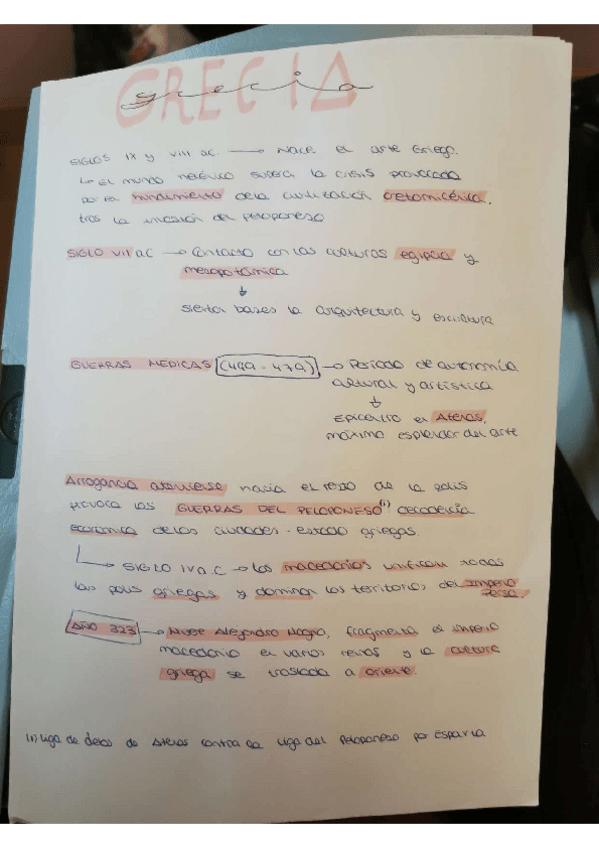 GRECIA
grecia
SIGLOS IX y VIII a.C. → Nace el arte Griego.
↳ El mundo helénico supera la crisis provocada
por el hundimiento de la civilización cretomicénica,
tras la invasión del Peloponeso
SIGLO VII a.C → Contacto con las culturas egipcia y
mesopotámica
↓
sientan bases la arquitectura y escultura
GUERRAS MEDICAS (499 - 479) → Periodo de autonomía
cultural y artística
↓
Epicentro en Atenas,
máximo esplendor del arte
Arrogancia ateniense hacia el resto de la polis
provoca las GUERRAS DEL PELOPONESO(1) decadencia
económica de las ciudades-estado griegas.
↳ SIGLO IV a.C → Los macedonios unifican todas
las polis griegas y dominan los territorios del Imperio
Persa.
AÑO 323 → Muere Alejandro Magno, fragmenta el imperio
macedonio en varios reinos y la cultura
griega se traslada a oriente.
(1) Liga de delos de Atenas contra la Liga del Peloponeso por Esparta